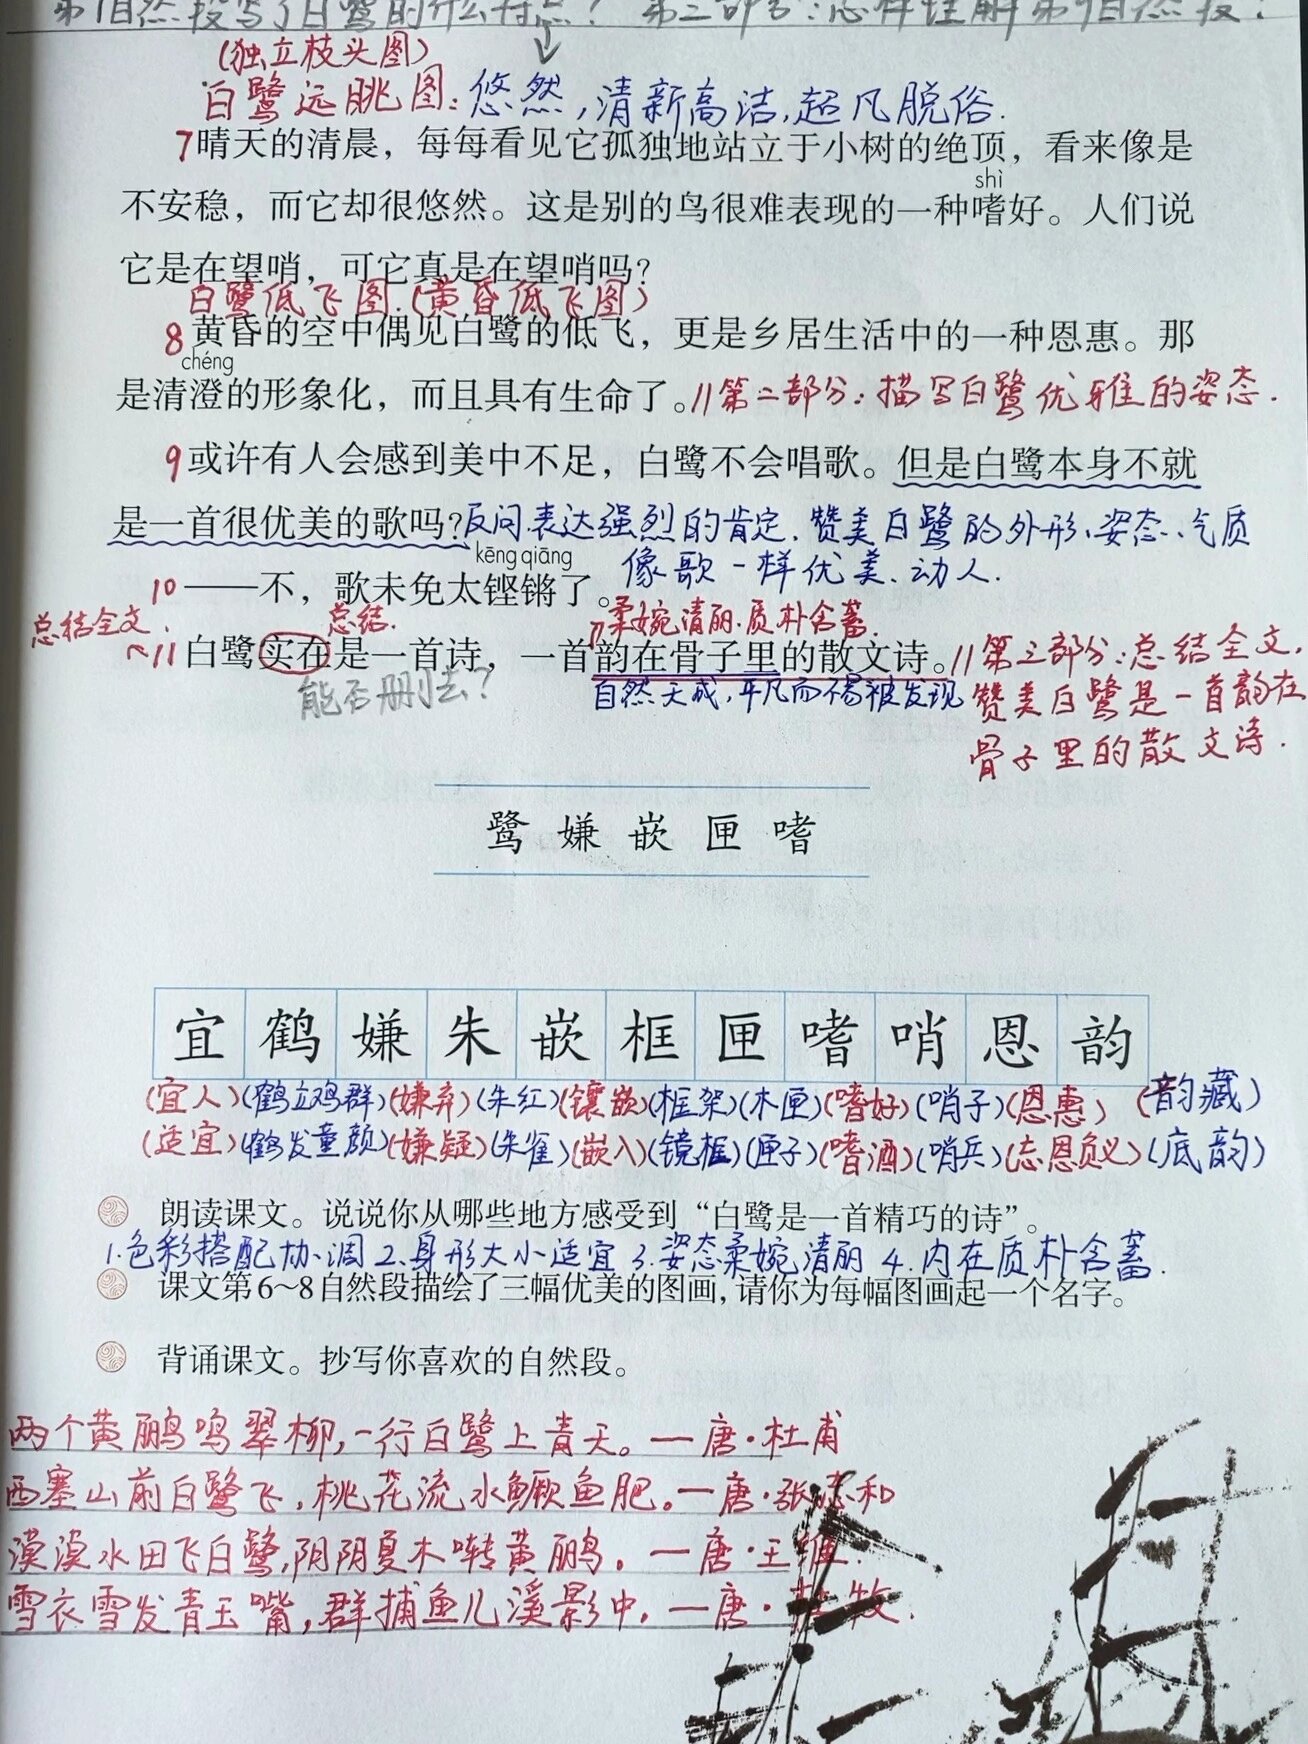 第1自然段写了白鹭的什么特点？ 第三部分：怎样理解第9自然段？
(独立枝头图)
白鹭远眺图：悠然，清新高洁，超凡脱俗.
7晴天的清晨，每每看见它孤独地站立于小树的绝顶，看来像是
shì
不安稳，而它却很悠然。这是别的鸟很难表现的一种嗜好。人们说
它是在望哨，可它真是在望哨吗？
白鹭低飞图.(黄昏低飞图)
8黄昏的空中偶见白鹭的低飞，更是乡居生活中的一种恩惠。那
chéng
是清澄的形象化，而且具有生命了。//第二部分：描写白鹭优雅的姿态.
9或许有人会感到美中不足，白鹭不会唱歌。但是白鹭本身不就
是一首很优美的歌吗？反问.表达强烈的肯定.赞美白鹭的外形、姿态、气质
像歌一样优美、动人.
kēng qiāng
10——不，歌未免太铿锵了。
柔婉清丽.质朴含蓄.
总结全文. 总结.
11白鹭实在是一首诗，一首韵在骨子里的散文诗。//第三部分：总结全文，
能否删去？ 自然天成，平凡而不易被发现 赞美白鹭是一首韵在
骨子里的散文诗.
鹭 嫌 嵌 匣 嗜
宜 鹤 嫌 朱 嵌 框 匣 嗜 哨 恩 韵
(宜人)(鹤立鸡群)(嫌弃)(朱红)(镶嵌)(框架)(木匣)(嗜好)(哨子)(恩惠)(韵藏)
(适宜)(鹤发童颜)(嫌疑)(朱雀)(嵌入)(镜框)(匣子)(嗜酒)(哨兵)(忘恩负义)(底韵)
朗读课文。说说你从哪些地方感受到“白鹭是一首精巧的诗”。
1.色彩搭配协调 2.身形大小适宜 3.姿态柔婉清丽 4.内在质朴含蓄.
课文第6~8自然段描绘了三幅优美的图画，请你为每幅图画起一个名字。
背诵课文。抄写你喜欢的自然段。
两个黄鹂鸣翠柳，一行白鹭上青天。—唐·杜甫
西塞山前白鹭飞，桃花流水鳜鱼肥。—唐·张志和
漠漠水田飞白鹭，阴阴夏木啭黄鹂。—唐·王维.
雪衣雪发青玉嘴，群捕鱼儿溪影中。—唐·杜牧.